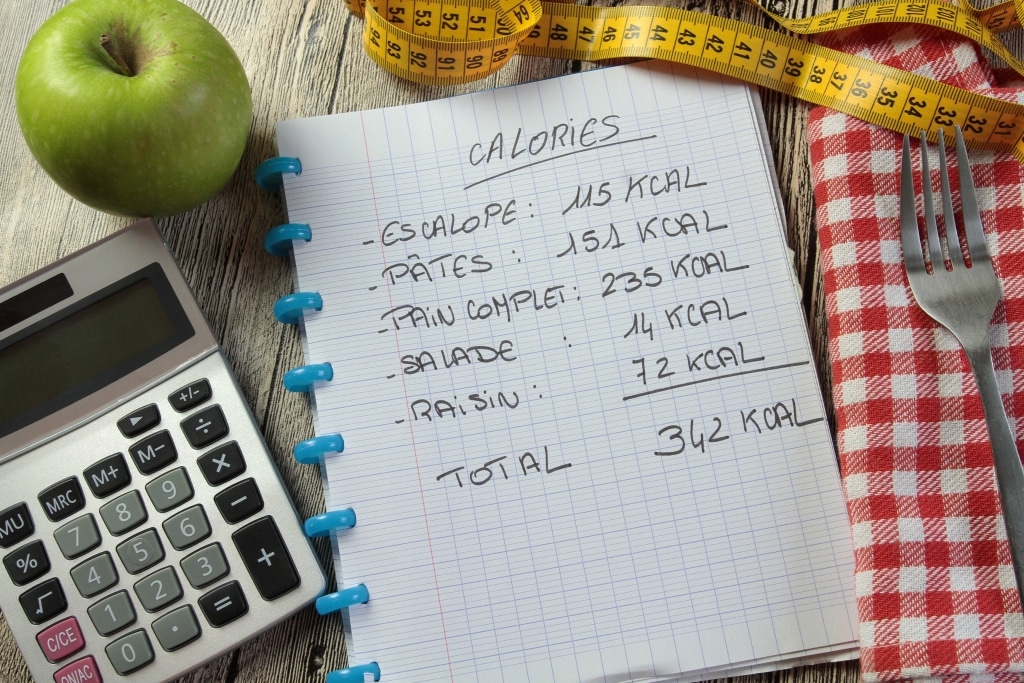 CALORIES
- ESCALOPE : 115 KCAL
- PÂTES : 151 KCAL
- PAIN COMPLET : 235 KCAL
- SALADE : 14 KCAL
- RAISIN : 72 KCAL
TOTAL 342 KCAL
54 53 52 51
94 93 92 91 90
45 44 43 42 41 40 39 38 37 36 35 34 33 32 31
▶ +/-
MRC M+ M- ÷
MU 7 8 9 ×
% 4 5 6 −
√ 1 2 3 +
C/CE 0 · =
ON/AC